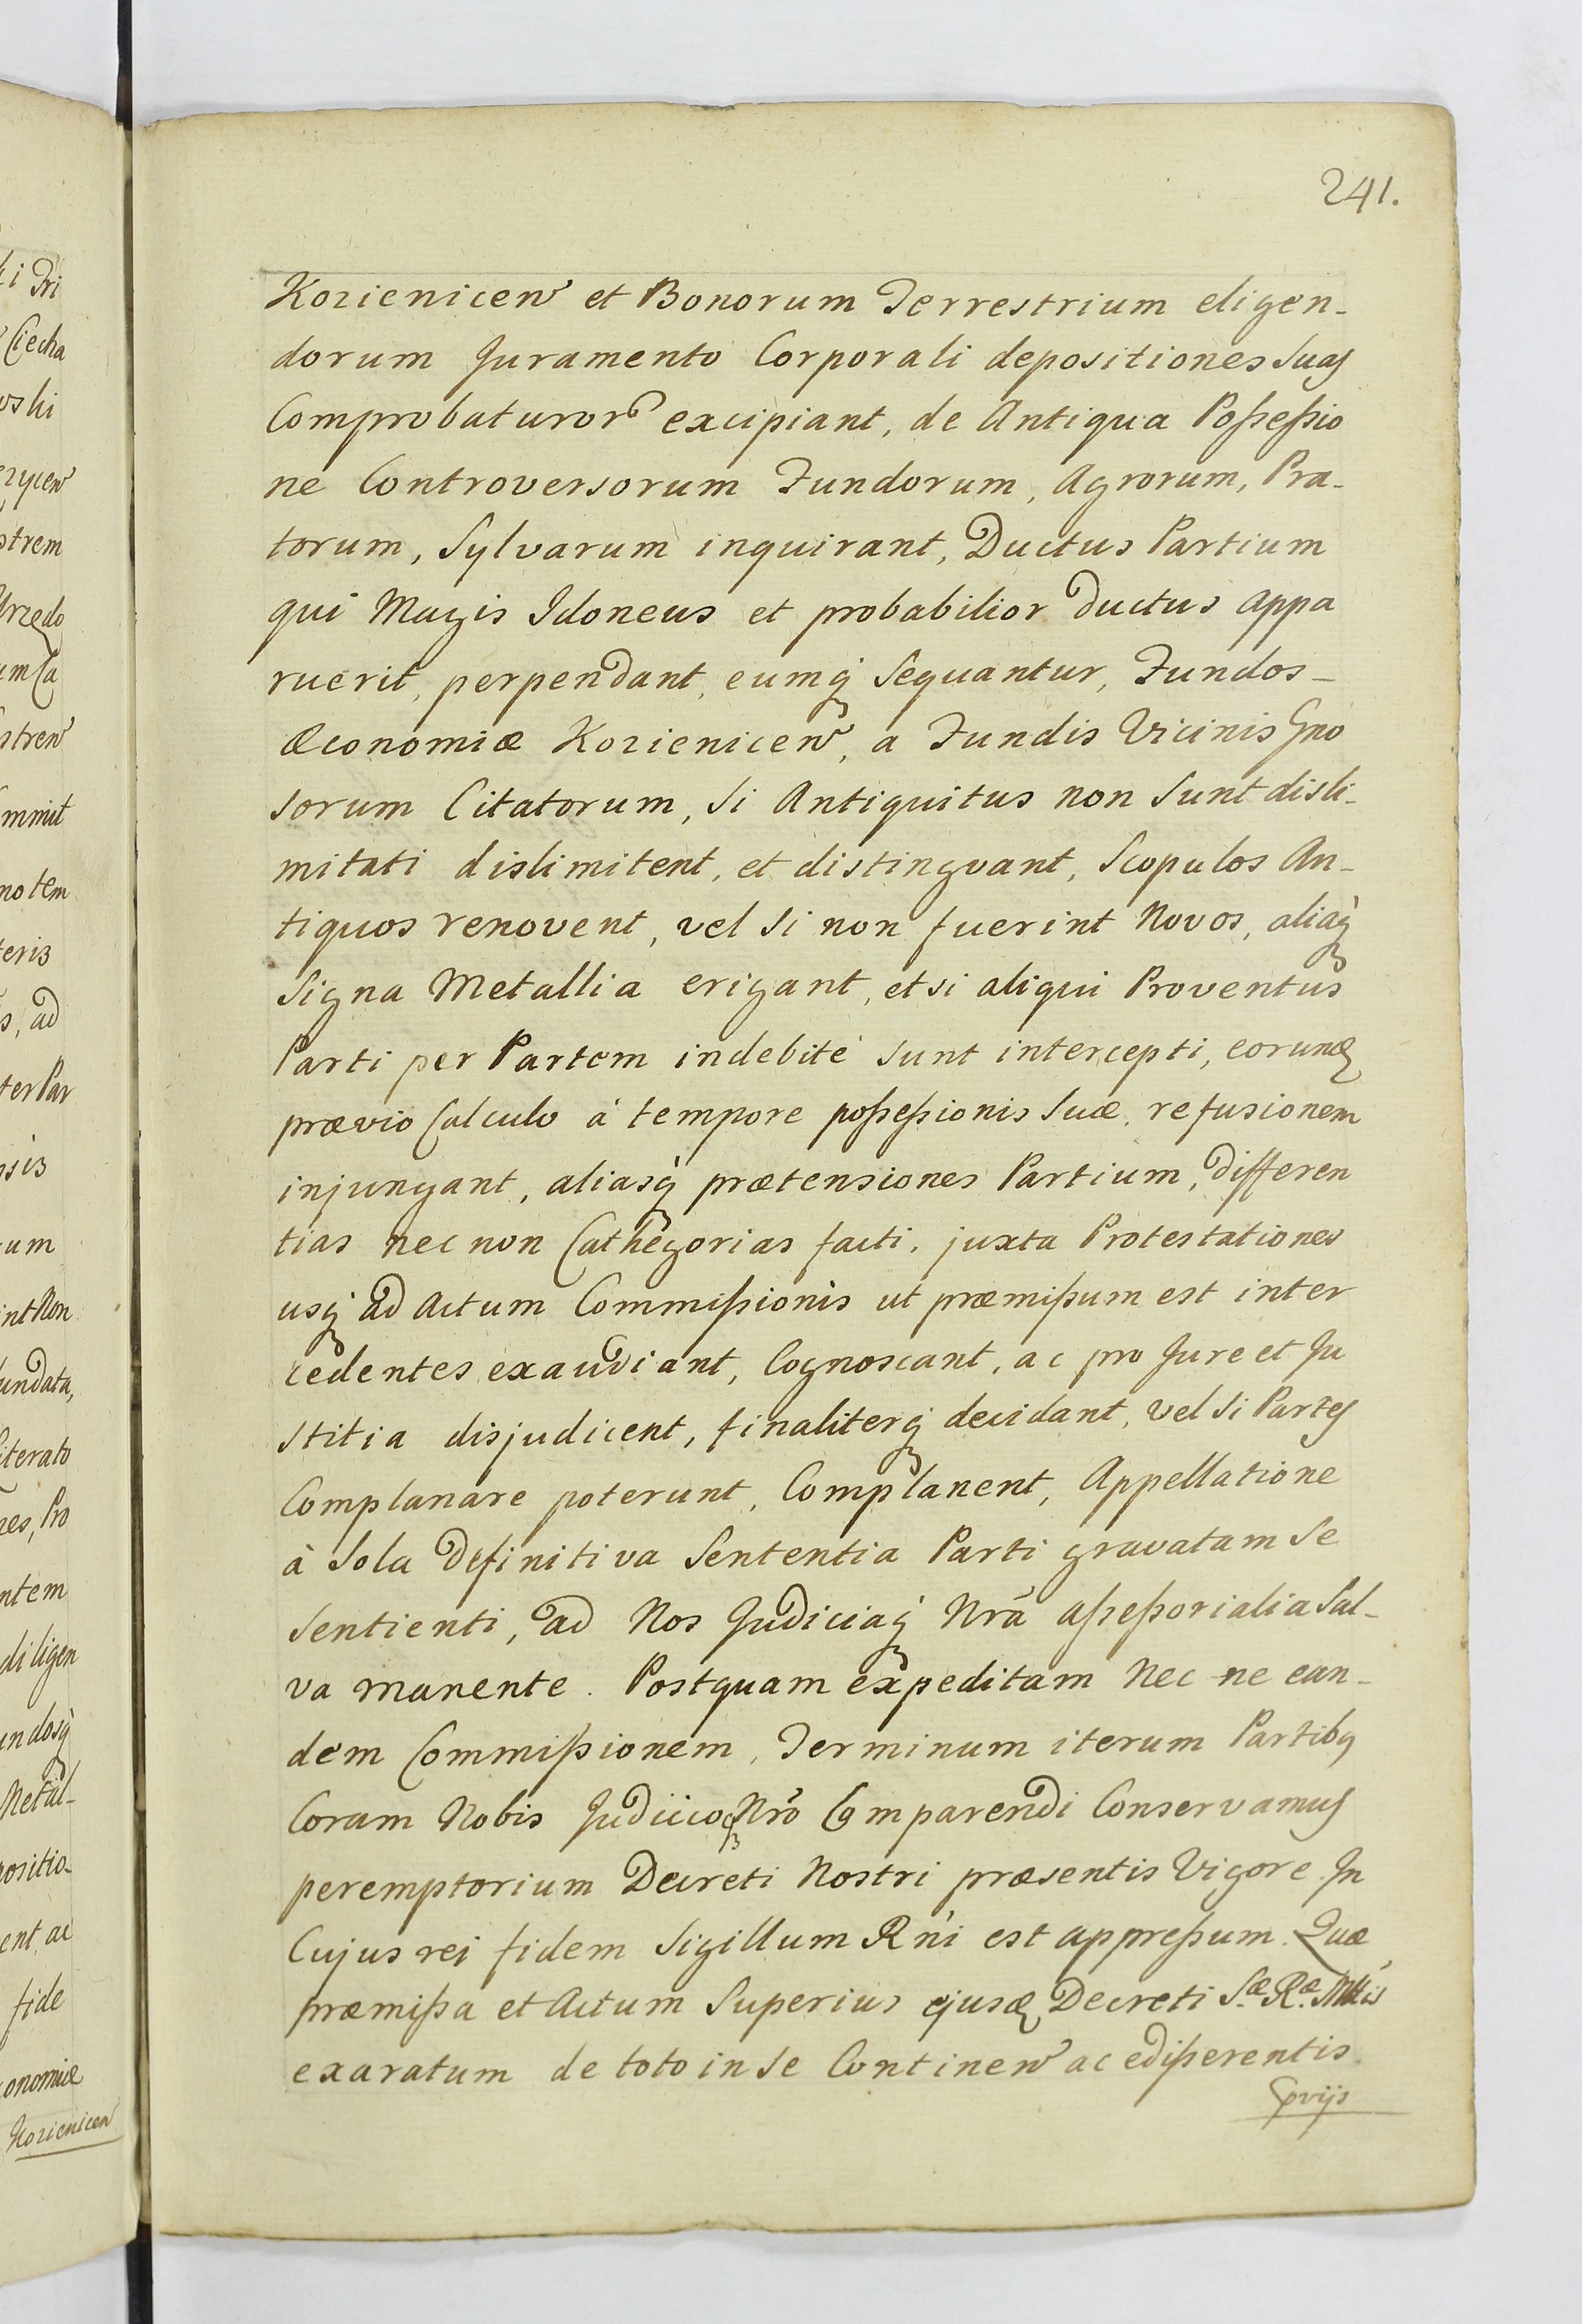 241.
Kozienicen et Bonorum Terrestrium eligen-
dorum Juramento Corporali depositiones Suas
Comprobaturor excipiant, de Antiqua Poßeßio
ne Controversorum Fundorum, Agrorum, Pra-
torum, Sylvarum inquirant, Ductus Partium
qui Magis Idoneus et probabilior ductus appa
ruerit, perpendant, eumq́ Sequantur, Fundos-
Œconomiæ Kozienicen, a Fundis Vicinis Gno
sorum Citatorum, Si Antiquitus non Sunt disli-
mitati dislimitent, et distingvant, Scopulos An-
tiquos renovent, vel Si non fuerint Novos, aliaq́
Signa Metallia erigant, et si aliqui Proventus
Parti per Partem indebité sunt intercepti, eorundem
prævio Calculo á tempore poßeßionis Suæ, refusionem
injungant, aliasq́ prætensiones Partium, differen
tias nec non Cathegorias facti, juxta Protestationes
usq́ ad Actum Commißionis ut præmißum est inter
cedentes exaudiant, Cognoscant, ac pro Jure et Ju
stitia disjudicent, finaliterq́ decidant, vel Si Partes
Complanare poterunt, Complanent, Appellatione
à Sola Definitiva Sententia Parti gravatam Se
Sentienti, ad Nos Judiciaq́ Nrã aßeßorialia Sal-
va manente. Postquam expeditam Nec ne ean-
dem Commißionem, Terminum iterum Partibq
Coram Nobis Judiicoq́ Nrõ Comparendi Conservamus
peremptorium Decreti Nostri præsentis Vigore. In
Cujus rei fidem Sigillum Rñi est appreßum. Quæ
præmißa et Actum Superius ejusdem Decreti Sæ Ræ Mttis
exaratum de toto in se Continen ac edißerentis